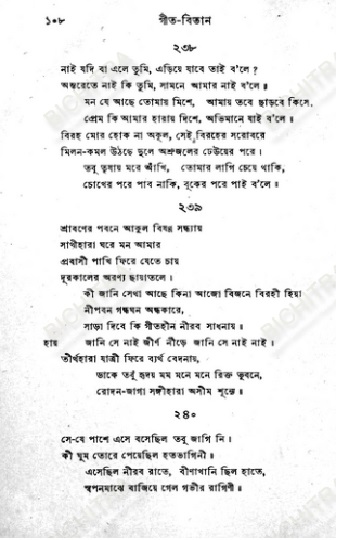 ১০৮ গীত-বিতান
২৩৮
নাই যদি বা এলে তুমি, এড়িয়ে যাবে তাই ব'লে ?
অন্তরেতে নাই কি তুমি, সামনে আমার নাই ব'লে ॥
মন যে আছে তোমায় মিশে, আমায় তবে ছাড়বে কিসে,
প্রেম কি আমার হারায় দিশে, অভিমানে যাই ব'লে ॥
বিরহ মোর হোক না অকূল, সেই বিরহের সরোবরে
মিলন-কমল উঠছে দুলে অশ্রুজলের ঢেউয়ের পরে ।
তবু তৃষায় মরে আঁখি, তোমার লাগি চেয়ে থাকি,
চোখের পরে পাব নাকি, বুকের পরে পাই ব'লে ॥
২৩৯
শ্রাবণের পবনে আকুল বিষণ্ণ সন্ধ্যায়
সাথীহারা ঘরে মন আমার
প্রবাসী পাখি ফিরে যেতে চায়
দূরকালের অরণ্য ছায়াতলে ।
কী জানি সেথা আছে কিনা আজো বিজনে বিরহী হিয়া
নীপবন গন্ধঘন অন্ধকারে,
সাড়া দিবে কি গীতহীন নীরব সাধনায় ॥
হায় জানি সে নাই জীর্ণ নীড়ে জানি সে নাই নাই ।
তীর্থহারা যাত্রী ফিরে ব্যর্থ বেদনায়,
ডাকে তবু হৃদয় মম মনে মনে রিক্ত ভুবনে,
রোদন-জাগা সঙ্গীহারা অসীম শূন্যে ॥
২৪০
সে-যে পাশে এসে বসেছিল তবু জাগি নি ।
কী ঘুম তোরে পেয়েছিল হতভাগিনী ॥
এসেছিল নীরব রাতে, বীণাখানি ছিল হাতে,
স্বপনমাঝে বাজিয়ে গেল গভীর রাগিণী ॥
BICHITRA